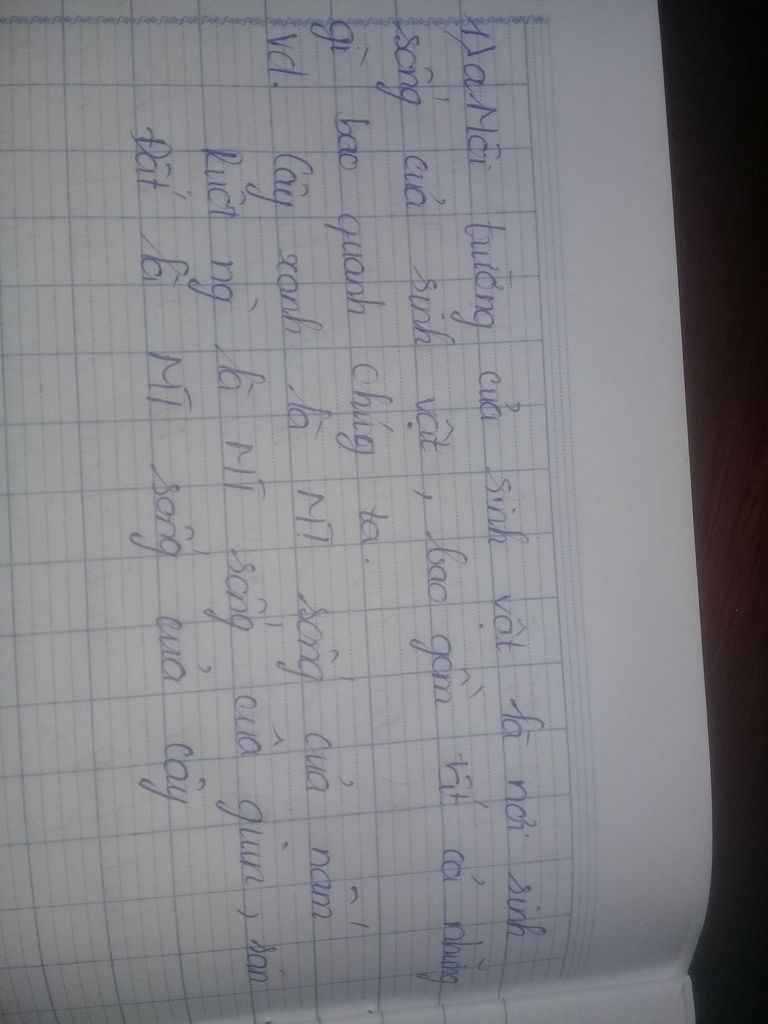 1) a. Môi trường của sinh vật là nơi sinh
sống của sinh vật, bao gồm tất cả những
gì bao quanh chúg ta.
Vd. Cây xanh là MT sống của nấm
Ruột ng là MT sống của giun, sán
Đất là MT sống của cây